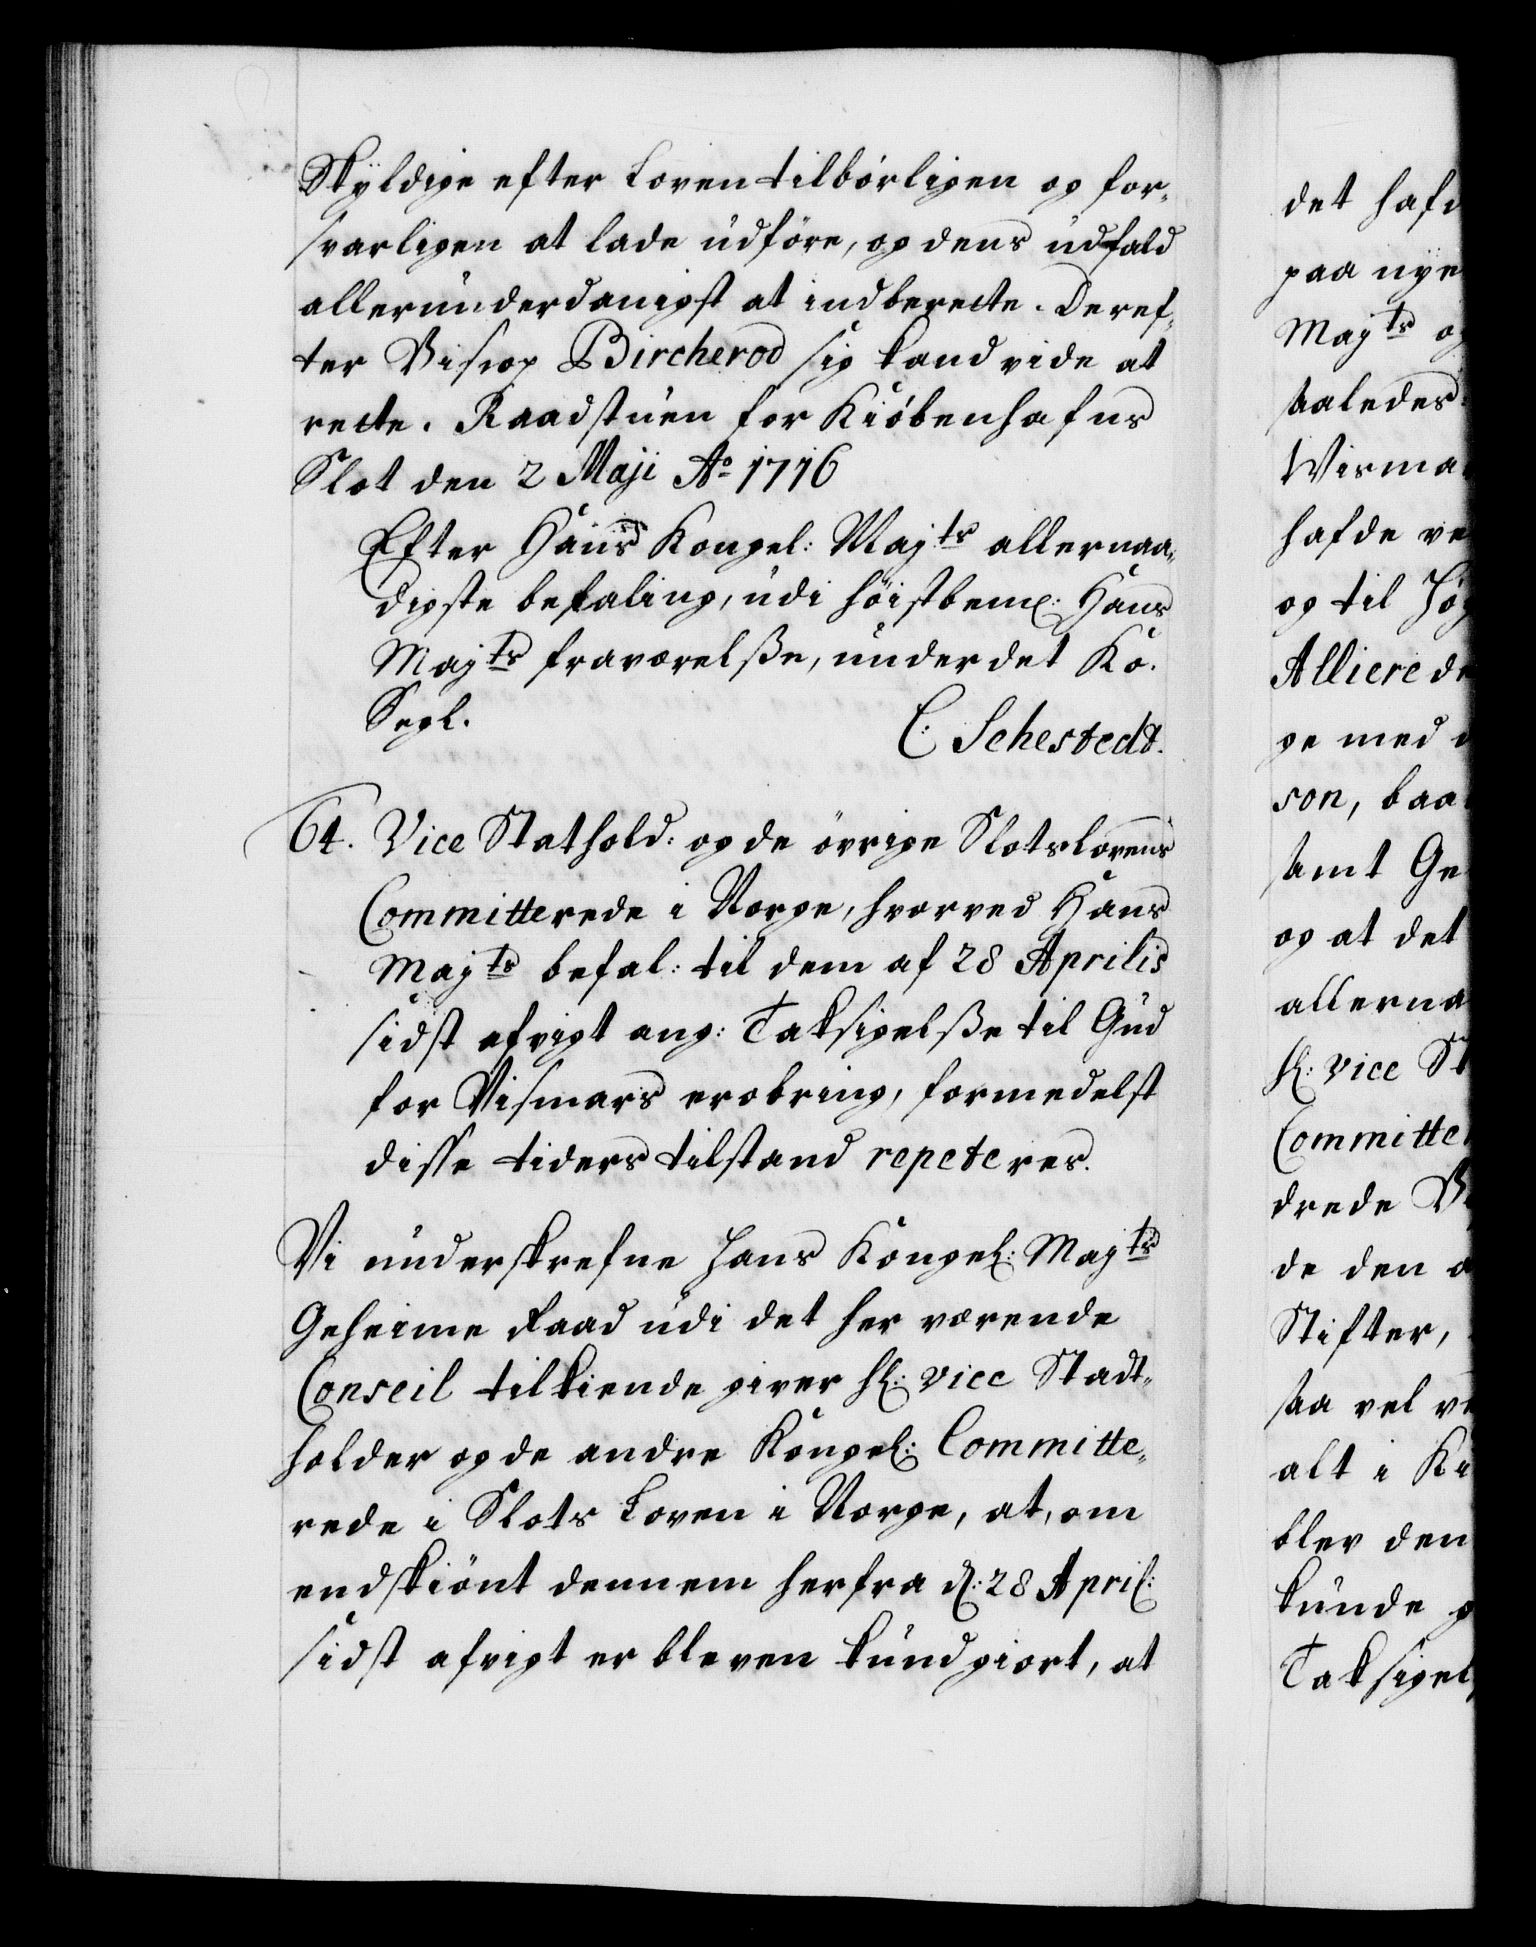 Skyldige efter Loven tilbörligen og for-
svarligen at lade udföre, og dens udfald
allerunderdanigst at indberette. Deref-
ter Biscop Bircherod sig kand vide at
rette. Raadstuen for Kiöbenhafns
Slot den 2 Maji Ao 1716
Efter Hans Kongel: Majts allernaa-
digste befaling, udi höistbeml: Hans
Majts fraværelße, under det Ko.
Segl.
C. Sehestedt.
64. Vice Stathold: og de övrige Slotslovens
Committerede i Norge, hvorved Hans
Majts befal: til dem af 28 Aprilis
sidst afvigt ang: Taksigelße til Gud
for Vismars erobring, formedelst
disse tiders tilstand repeteres.
Vi underskrefne Hans Kongel: Majts
Geheime Raad udi det her værende
Conseil tilkiende giver hl: vice Stadt-
holder og de andre Kongel: Committe-
rede i Slots Loven i Norge, at, om
endskiönt dennem herfra d: 28 April:
sidst afvigt er bleven kundgiort, at
det hafd
paa nye
Majts og
saaledes
Wisma
hafde ve
og til Hög
Allierede
ge med
son, baa
samt Ge
og at det
allerna
hl: vice St
Committe
drede
de den
Stifter,
saa vel ve
alt i Ki
blev den
kunde g
Taksigel